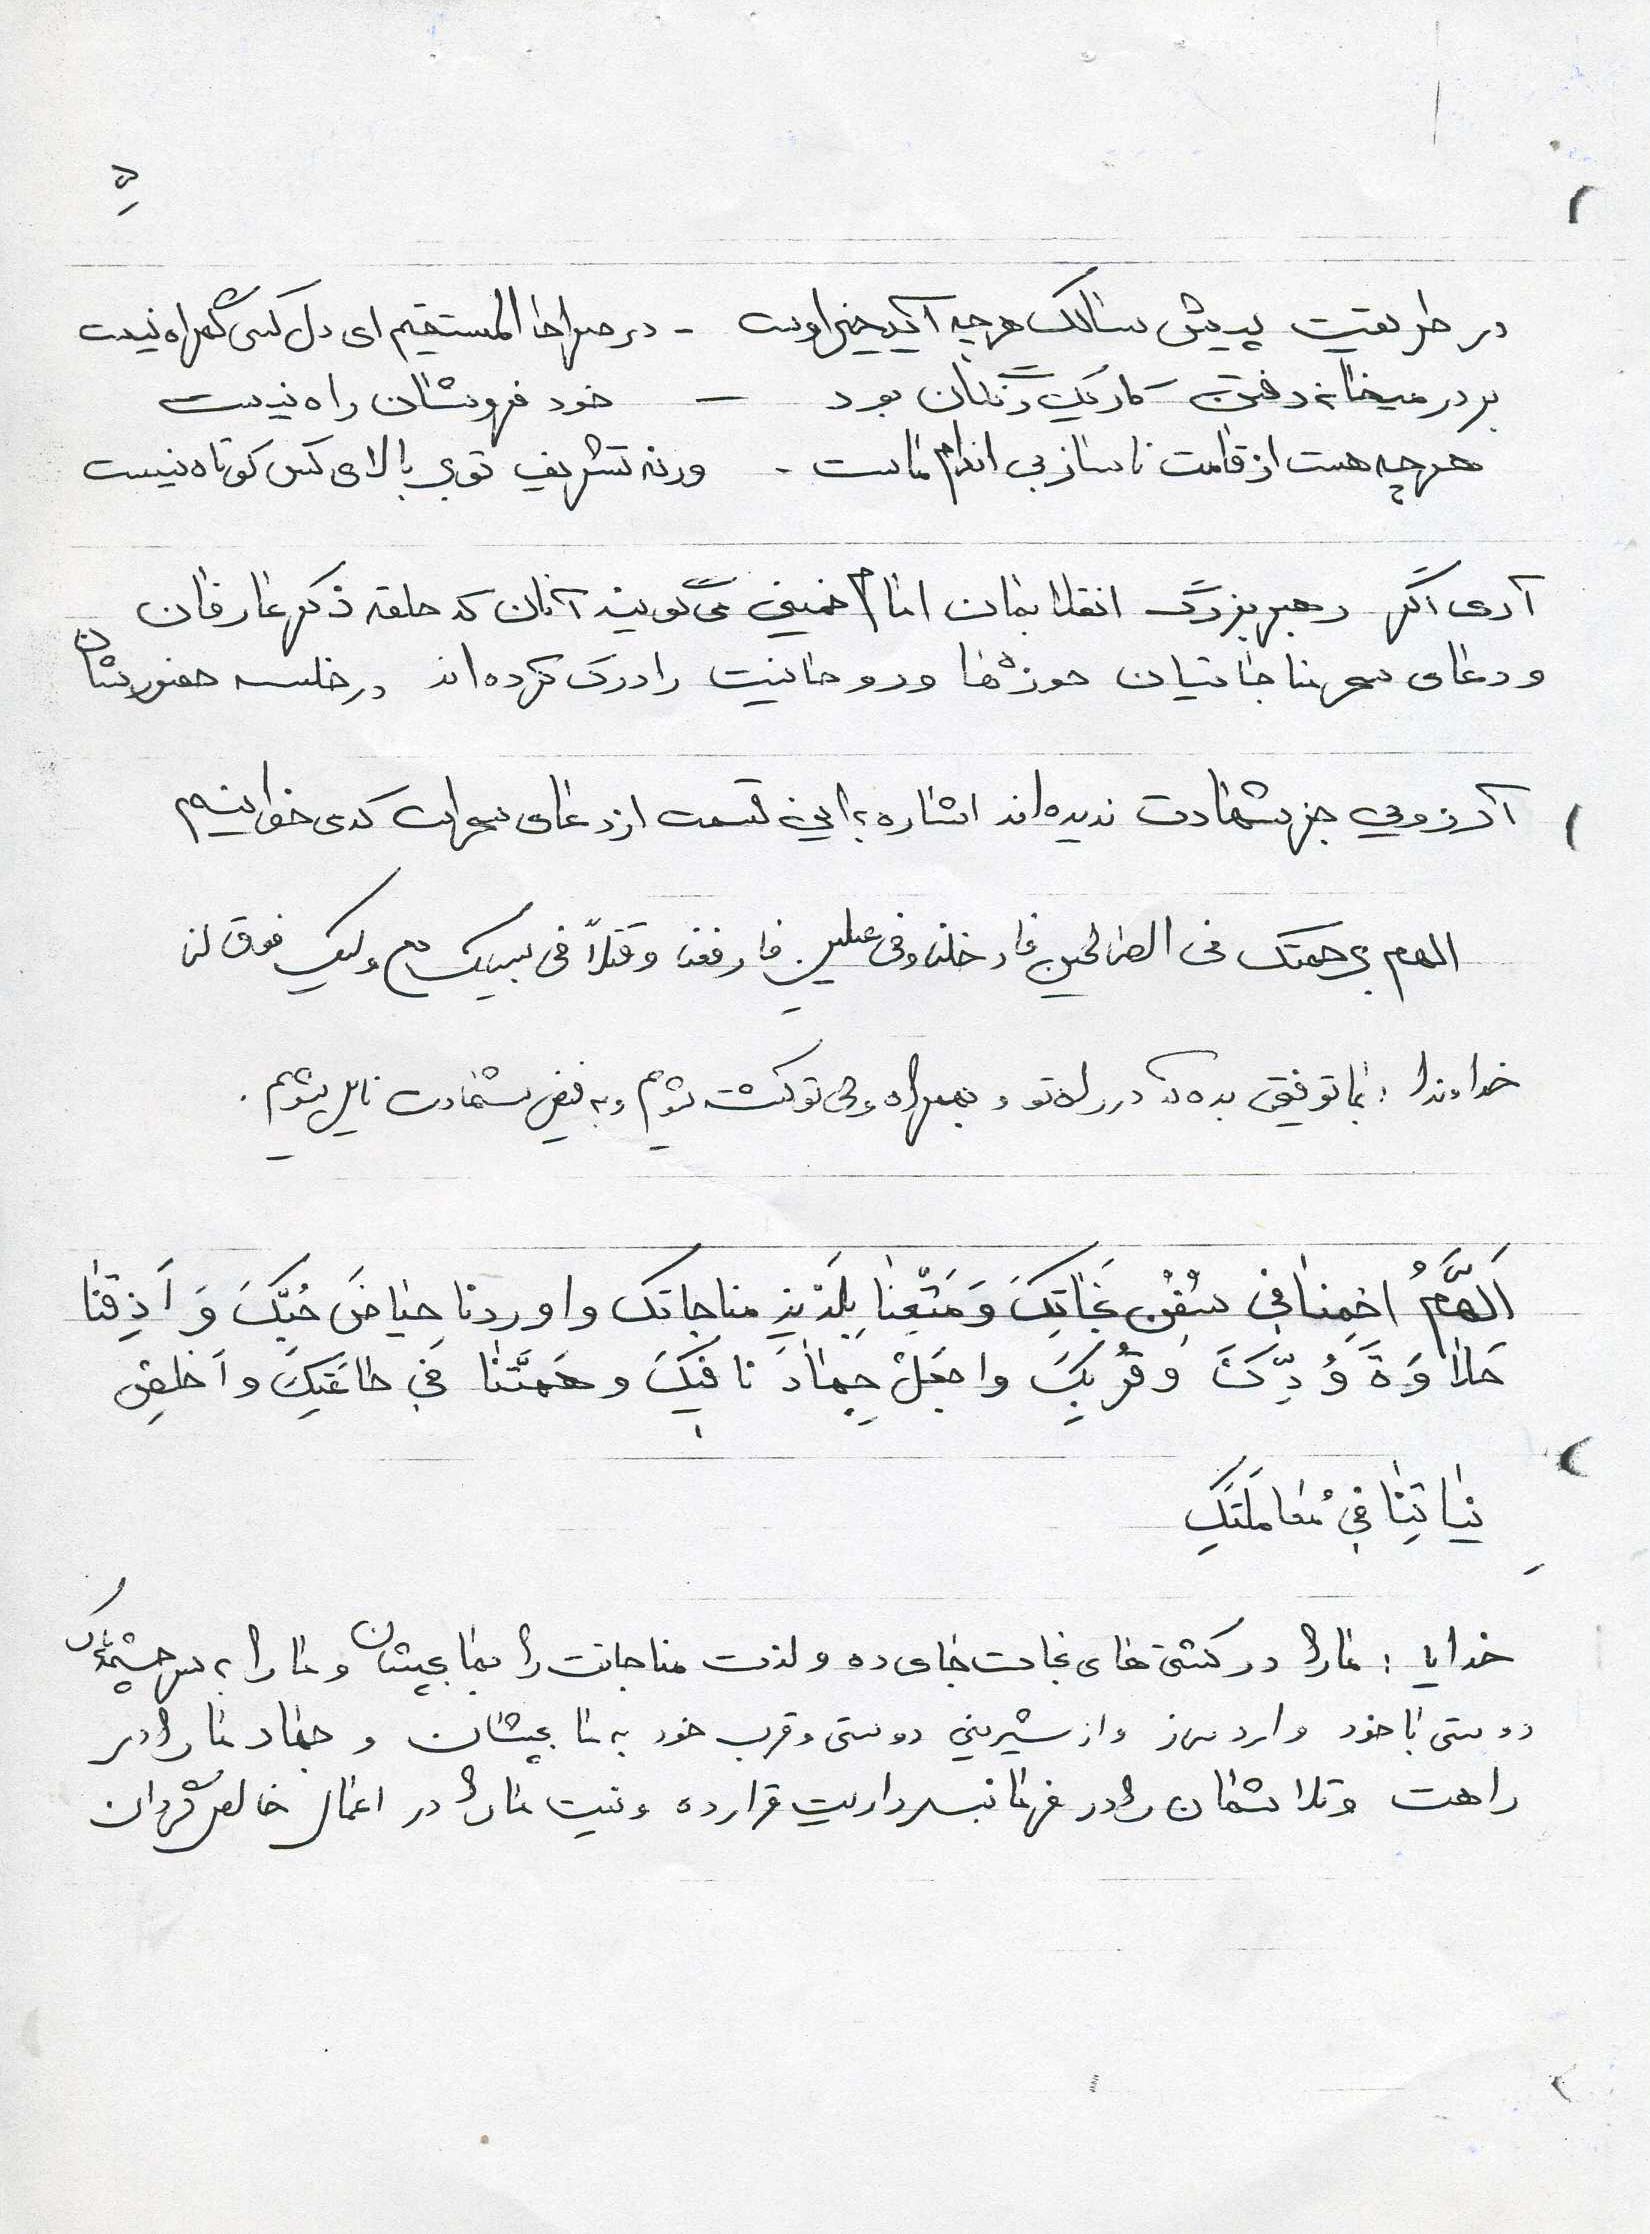 ۵
در طریقت پیش سالک هرچه آید خیر اوست - در صراط المستقیم ای دل کسی گمراه نیست
بر در میخانه رفتن کار یکرنگان بود - خود فروشان را ه نیست
هرچه هست از قامت ناساز بی اندام ماست - ورنه تشریف تو بر بالای کس کوتاه نیست
آری اگر رهبر بزرگ انقلابمان امام خمینی می گویند آنان که حلقه ذکر عارفان
و دعای سحر مناجاتیان حوزه ها و روحانیت را درک کرده اند در خلسه حضورشان
آرزویی جز شهادت ندیده اند اشاره به این قسمت از دعای سحر است که می خوانیم
اللهم برحمتک فی الصالحین فادخلنا و فی علیین فارفعنا و قتلاً فی سبیلک مع ولیک فوفق لنا
خداوندا : بما توفیق بده که در راه تو و بهمراه ولی تو کشته شویم و به فیض شهادت نایل شویم .
اَللّهُمَّ احْمِلنا فی سُفُنِ نَجٰاتِکَ وَ مَتِّعْنٰا بِلَذیذِ مناجاتک و اوردنا حِیٰاضَ حُبِّکَ وَ اَذِقْنٰا
حَلاٰوَةَ وُدِّکَ وَ قُرْبِکَ و اجْعَلْ جِهٰادَنا فیکَ و هَمَّتَنٰا فی طٰاعَتِکَ و اَخلِصْ
نیّاتِنٰا فی مُعٰامَلَتِکَ
خدایا : ما را در کشتی های نجات جای ده و لذت مناجاتت را بما بچشان و ما را به سرچشمه های
دوستی با خود وارد ساز و از شیرینی دوستی و قرب خود به ما بچشان و جهاد ما را در
راهت و تلاشمان را در فرمانبرداریت قرار ده و نیت ما را در اعمال خالص گردان